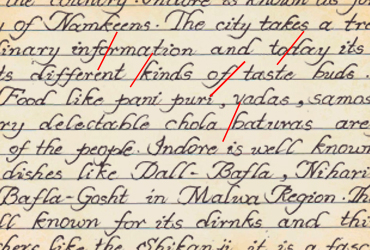 the country. Indore is known as
of Namkeens. The city takes a tra
linary information and today its
ts different kinds of taste buds.
Food like pani puri, vadas, samos
ry delectable chola baturas are
of the people. Indore is well known
dishes like Dall-Bafla, Nihari
Bafla-Gosht in Malwa Region. Th
ll known for its dirnks and thi
here like the Shikanji, it is a fasc